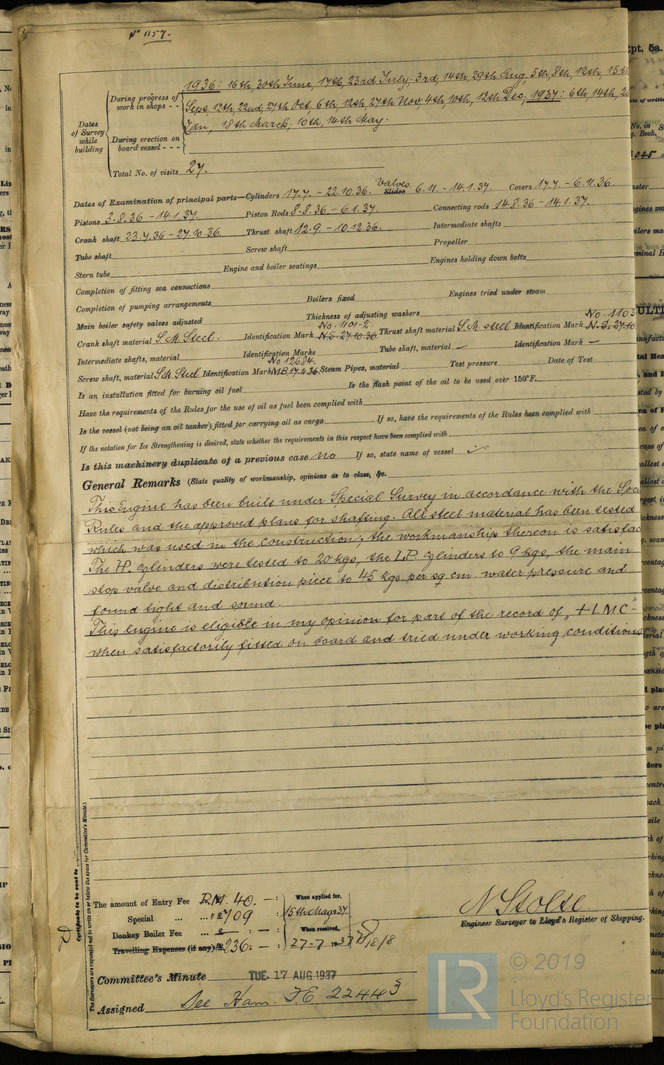 No 1157.
1936: 16th, 30th June, 17th, 23rd July: 3rd, 14th, 29th Aug, 5th, 8th, 12th, 15th
During progress of work in shops - -
Sept. 12th, 22nd, 27th Oct. 6th, 12th, 27th Nov. 4th, 10th, 12th Dec, 1937: 6th, 14th,
Jan; 18th March; 10th, 14th May.
Dates of Survey while building
During erection on board vessel - - -
Total No. of visits 27.
Dates of Examination of principal parts—Cylinders 17.7. - 22.10.36. Valves Slides 6.11. - 14.1.37. Covers 17.7. - 6.11.36.
Pistons 3.8.36 - 14.1.37. Piston Rods 8.8.36 - 6.1.37. Connecting rods 14.8.36 - 14.1.37.
Crank shaft 23.7.36 - 27.10.36. Thrust shaft 12.9 - 10.12.36. Intermediate shafts
Tube shaft Screw shaft Propeller
Stern tube Engine and boiler seatings Engines holding down bolts
Completion of fitting sea connections
Completion of pumping arrangements Boilers fixed Engines tried under steam
Main boiler safety valves adjusted Thickness of adjusting washers
Crank shaft material S.M. Steel. Identification Mark No. 1101-2 N.S. 27.10.36 Thrust shaft material S.M. steel Identification Mark No. 1103 N.S. 27.10.
Intermediate shafts, material Identification Marks Tube shaft, material Identification Mark
Screw shaft, material S.M. Steel Identification Mark No 12684. M.B. 17.4.36. Steam Pipes, material Test pressure Date of Test
Is an installation fitted for burning oil fuel Is the flash point of the oil to be used over 150°F.
Have the requirements of the Rules for the use of oil as fuel been complied with
Is the vessel (not being an oil tanker) fitted for carrying oil as cargo If so, have the requirements of the Rules been complied with
If the notation for Ice Strengthening is desired, state whether the requirements in this respect have been complied with
Is this machinery duplicate of a previous case No If so, state name of vessel
General Remarks (State quality of workmanship, opinions as to class, &c.
This Engine has been built under Special Survey in accordance with the
Rules and the approved plans for shafting. All steel material has been tested
which was used in the construction; the workmanship thereon is
The H.P. cylinders were tested to 20 kgs, the L.P. cylinders to 9 kgs, the main
stop valve and distribution piece to 45 kgs. per sq cm. water pressure and
found tight and sound.
This Engine is eligible in my opinion for part of the record of „+LMC"
when satisfactorily fitted on board and tried under working conditions
Certificate to be sent to
(The Surveyors are requested not to write on or below the space for Committee's Minute.)
The amount of Entry Fee RM. 40. — : When applied for,
Special ... ... 709 : 15th May 37
Donkey Boiler Fee ... : : When received,
Travelling Expenses (if any) 236: — : 27-7-1937
N Stolte
Engineer Surveyor to Lloyd's Register of Shipping.
Committee's Minute TUE. 17 AUG 1937
Assigned See Ham. F.E. 22443
© 2019
Lloyd's Register
Foundation
LR